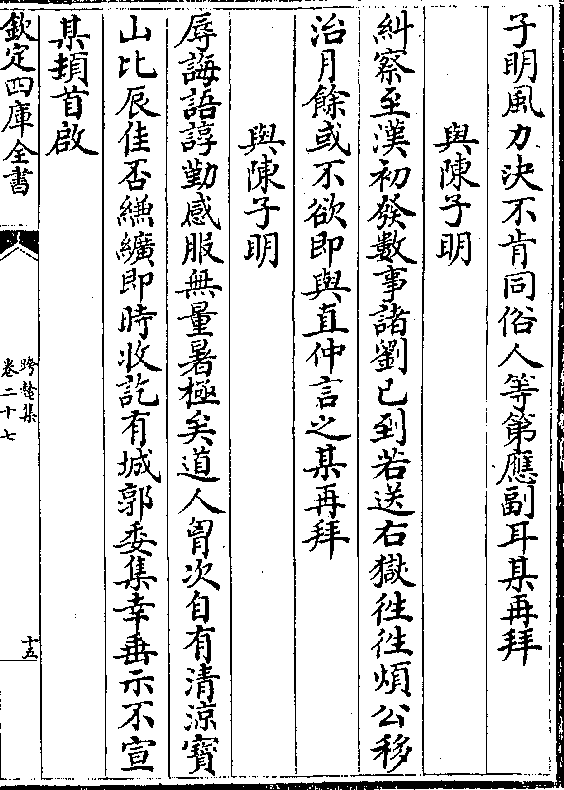 子明風力決不肯同俗人等第應副耳某再拜
與陳子明
糾察至漢初發數事諸劉已到若送右獄徃徃煩公移
治月餘或不欲即與直仲言之某再拜
與陳子明
辱誨語諄勤感服無量暑極矣道人胷次自有清涼寶
山比辰佳否縑纊即時收訖有城郭委集幸垂示不宣
某頓首啟
欽定四庫全書
跨鼇集
卷二十七
十五